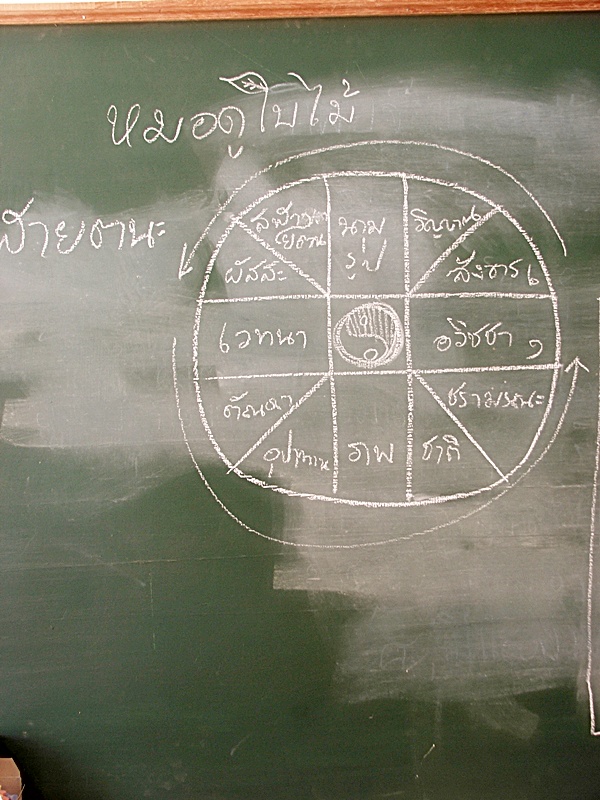 หมอดูใบไม้
สฬายตนะ
นาม
รูป
วิญญาณ
สังขาร
ผัสสะ
เวทนา
อวิชชา
ตัณหา
ชรามรณะ
อุปาทาน
ภพ
ชาติ